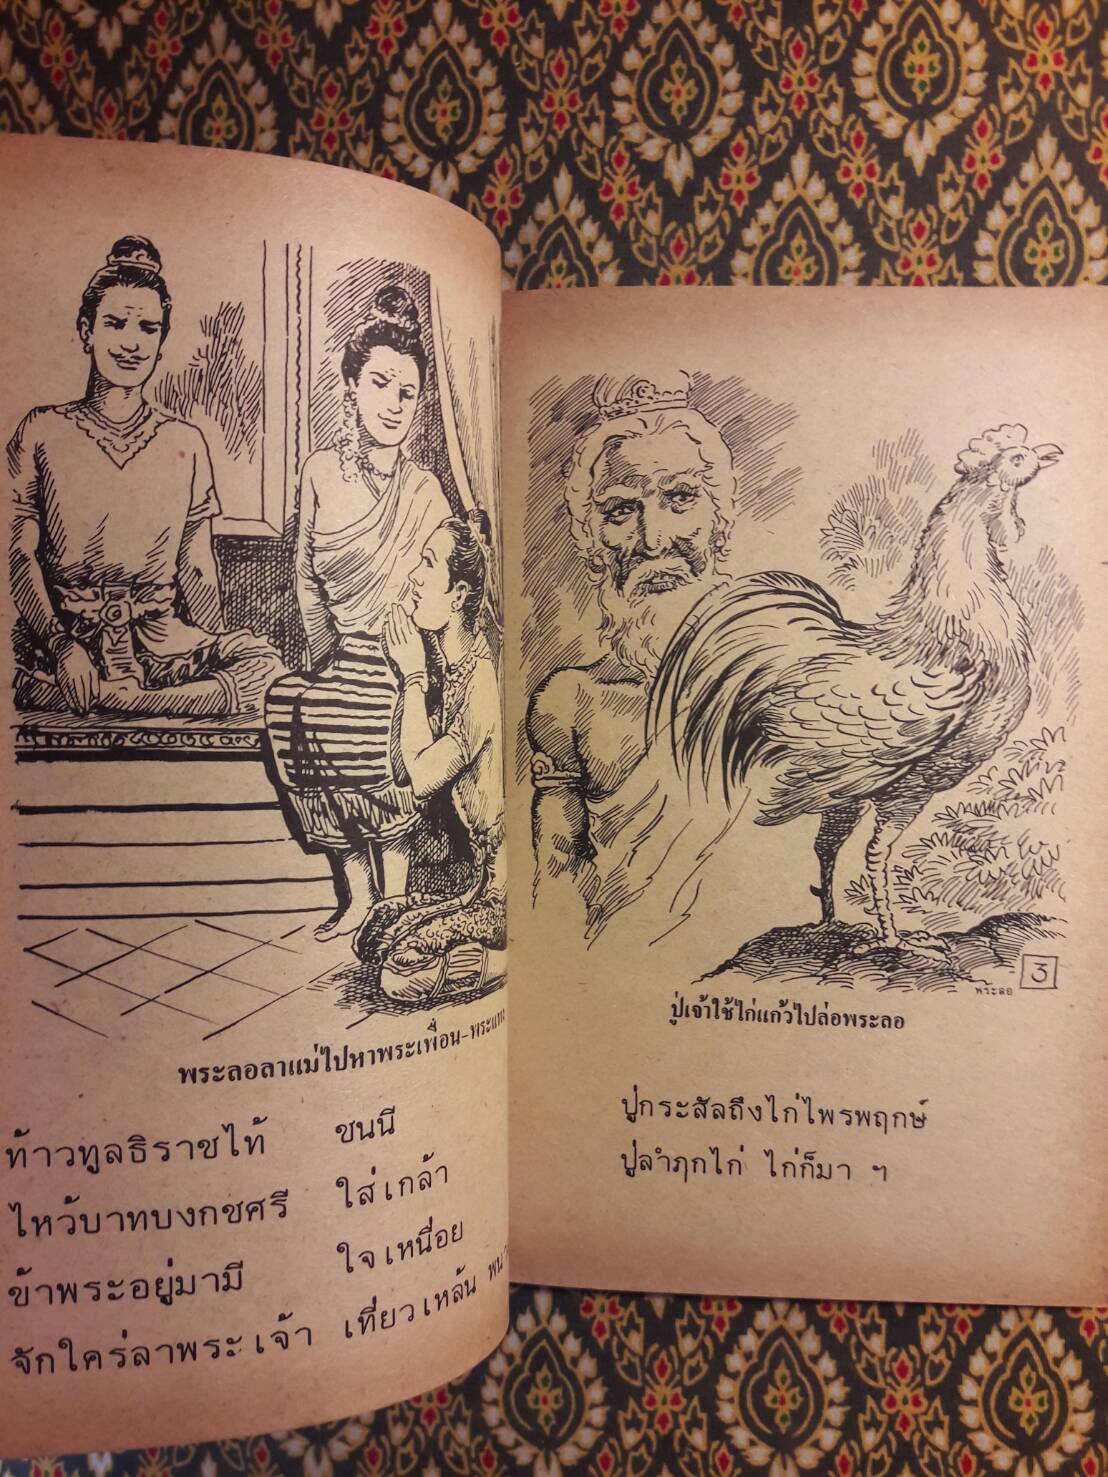 พระลอลาแม่ไปหาพระเพื่อน-พระแพง
ท้าวทูลธิราชไท้ ชนนี
ไหว้บาทบงกชศรี ใส่เกล้า
ข้าพระอยู่มามี ใจเหนื่อย
จักใคร่ลาพระเจ้า เที่ยวเหล้น
พระลอ
3
ปู่เจ้าใช้ไก่แก้วไปล่อพระลอ
ปู่กระสัลถึงไก่ไพรพฤกษ์
ปู่ลำฦกไก่ ไก่ก็มา ฯ